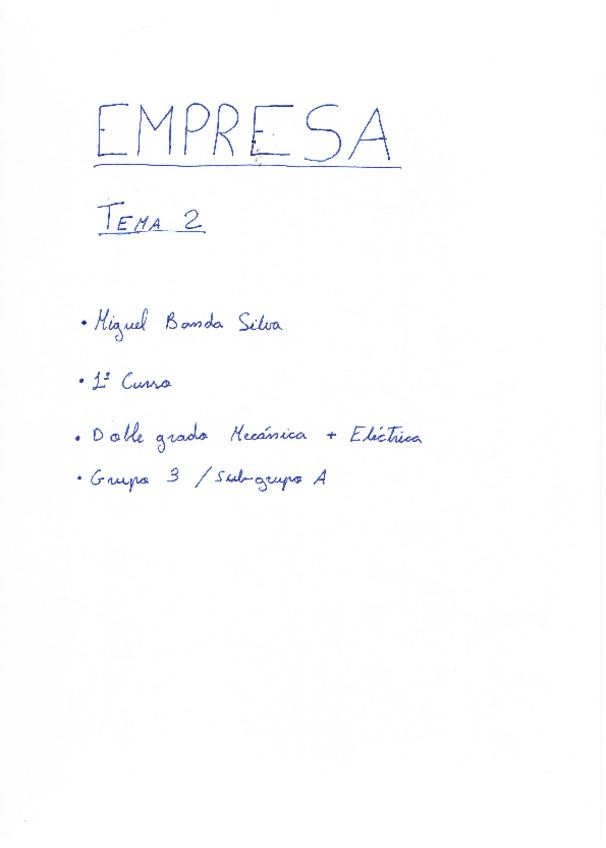 EMPRESA
TEMA 2
• Miguel Banda Silva
• 1º Curso
• Doble grado Mecánica + Eléctrica
• Grupo 3 / Subgrupo A